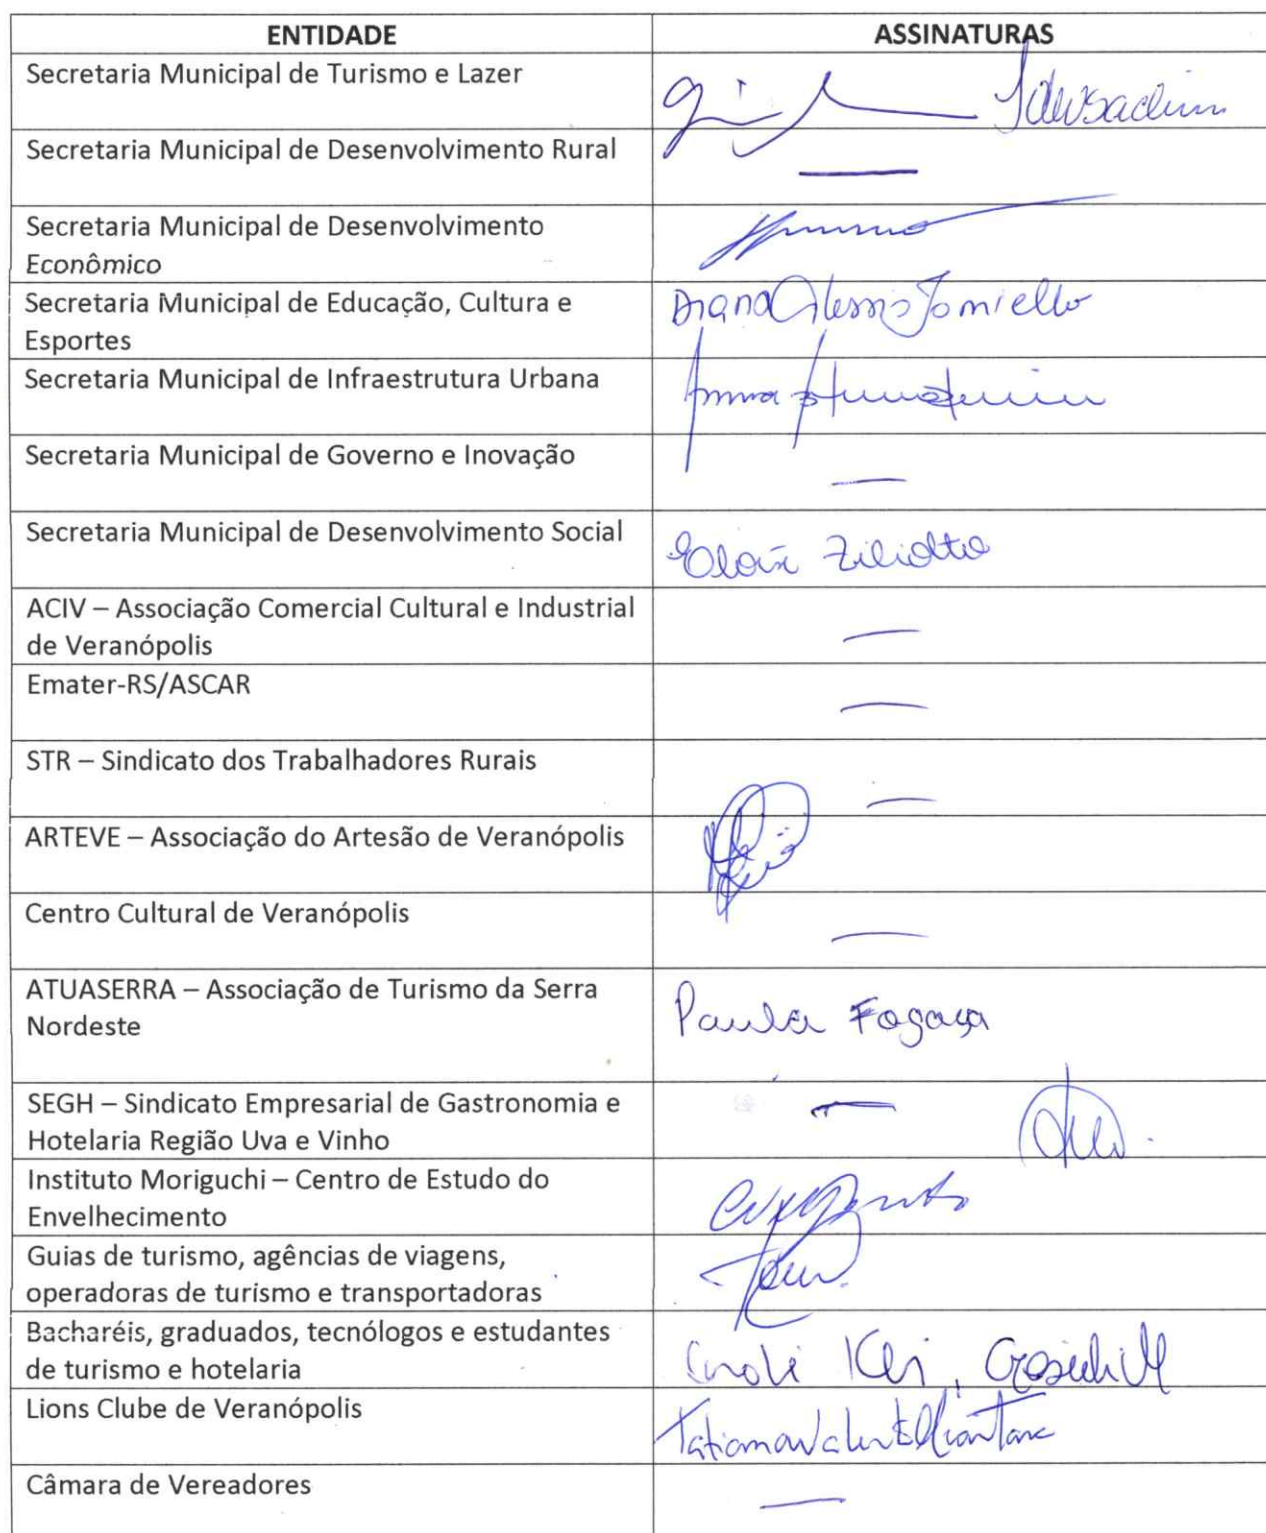 ENTIDADE ASSINATURAS
Secretaria Municipal de Turismo e Lazer
Secretaria Municipal de Desenvolvimento Rural
Secretaria Municipal de Desenvolvimento
Econômico
Secretaria Municipal de Educação, Cultura e
Esportes
Secretaria Municipal de Infraestrutura Urbana
Secretaria Municipal de Governo e Inovação
Secretaria Municipal de Desenvolvimento Social
Ziliotto
ACIV – Associação Comercial Cultural e Industrial
de Veranópolis
Emater-RS/ASCAR
STR – Sindicato dos Trabalhadores Rurais
ARTEVE – Associação do Artesão de Veranópolis
Centro Cultural de Veranópolis
ATUASERRA – Associação de Turismo da Serra
Nordeste
Paula Fogaça
SEGH – Sindicato Empresarial de Gastronomia e
Hotelaria Região Uva e Vinho
Instituto Moriguchi – Centro de Estudo do
Envelhecimento
Guias de turismo, agências de viagens,
operadoras de turismo e transportadoras
Bacharéis, graduados, tecnólogos e estudantes
de turismo e hotelaria
Lions Clube de Veranópolis
Câmara de Vereadores